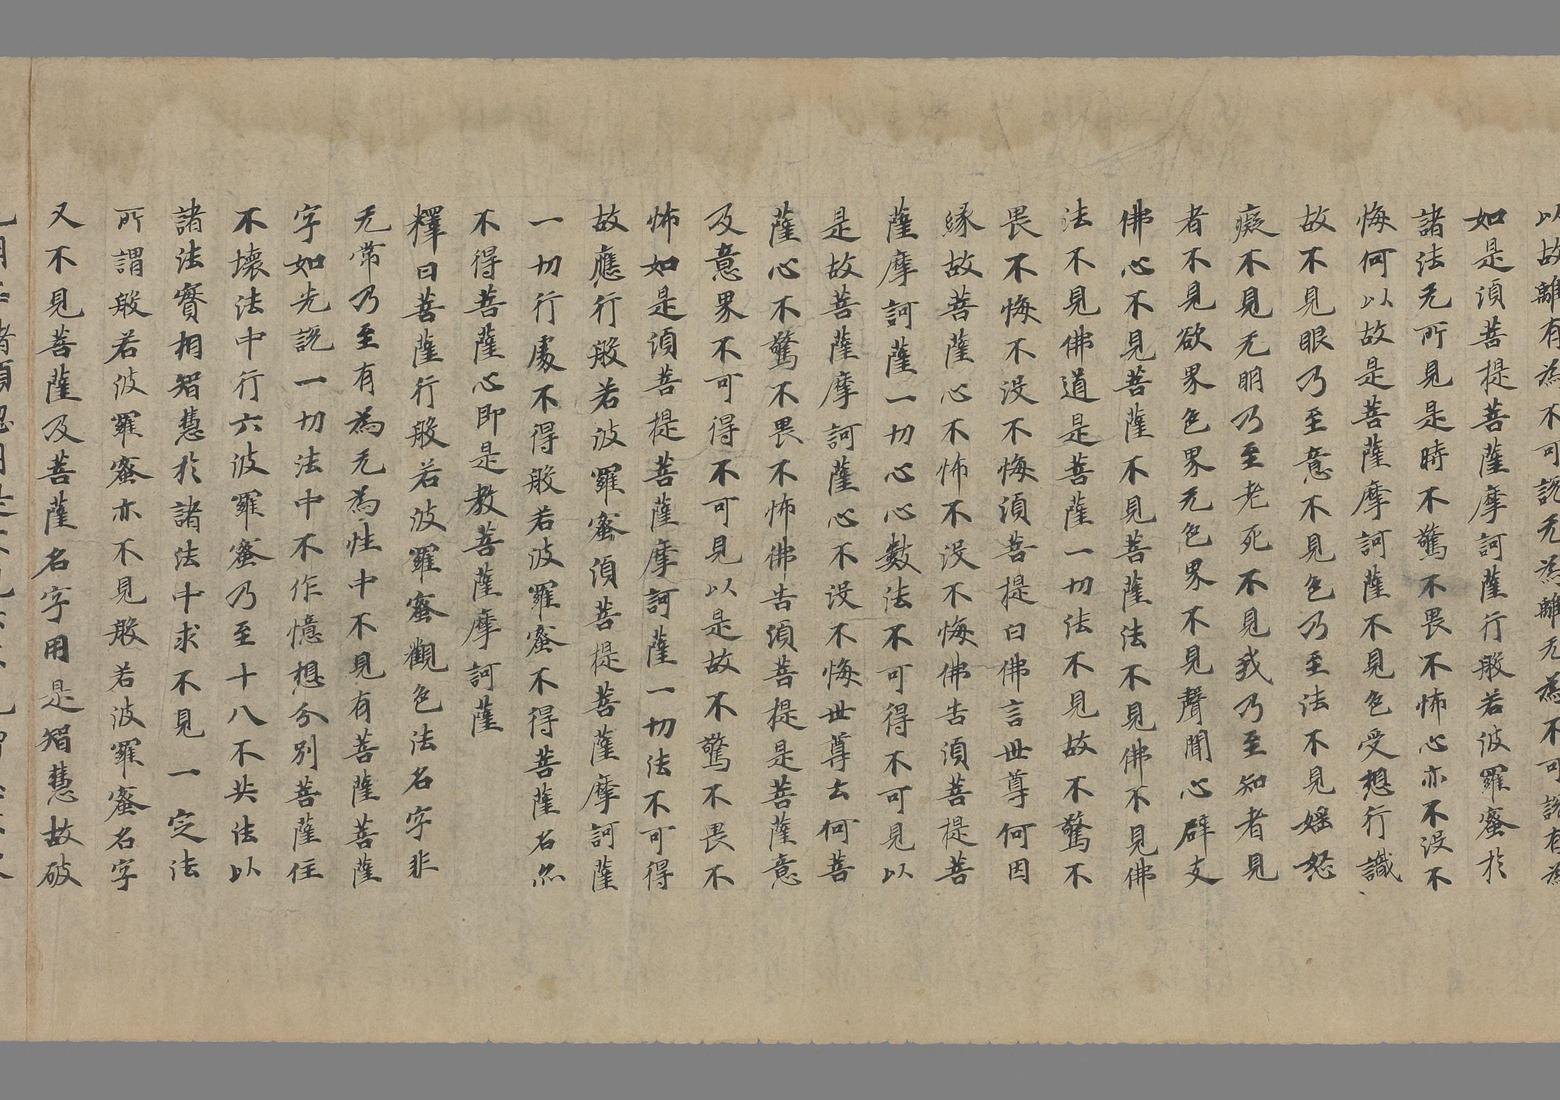 以故離有為不可說无為離无為不可說有為
如是湏菩提菩薩摩訶薩行般若波羅蜜於
諸法无所見是時不驚不畏不怖心亦不没不
悔何以故是菩薩摩訶薩不見色受想行識
故不見眼乃至意不見色乃至法不見婬怒
癡不見无明乃至老死不見我乃至知者見
者不見欲界色界无色界不見聲聞心辟支
佛心不見菩薩不見菩薩法不見佛不見佛
法不見佛道是菩薩一切法不見故不驚不
畏不悔不没不悔湏菩提白佛言世尊何因
緣故菩薩心不怖不没不悔佛告湏菩提菩
薩摩訶薩一切心心數法不可得不可見以
是故菩薩摩訶薩心不没不悔世尊云何菩
薩心不驚不畏不怖佛告湏菩提是菩薩意
及意界不可得不可見以是故不驚不畏不
怖如是湏菩提菩薩摩訶薩一切法不可得
故應行般若波羅蜜湏菩提菩薩摩訶薩
一切行處不得般若波羅蜜不得菩薩名亦
不得菩薩心即是教菩薩摩訶薩
釋曰菩薩行般若波羅蜜觀色法名字非
无常乃至有為无為性中不見有菩薩菩薩
字如先說一切法中不作憶想分別菩薩住
不壞法中行六波羅蜜乃至十八不共法以
諸法實相智慧於諸法中求不見一定法
所謂般若波羅蜜亦不見般若波羅蜜名字
又不見菩薩及菩薩名字用是智慧故破